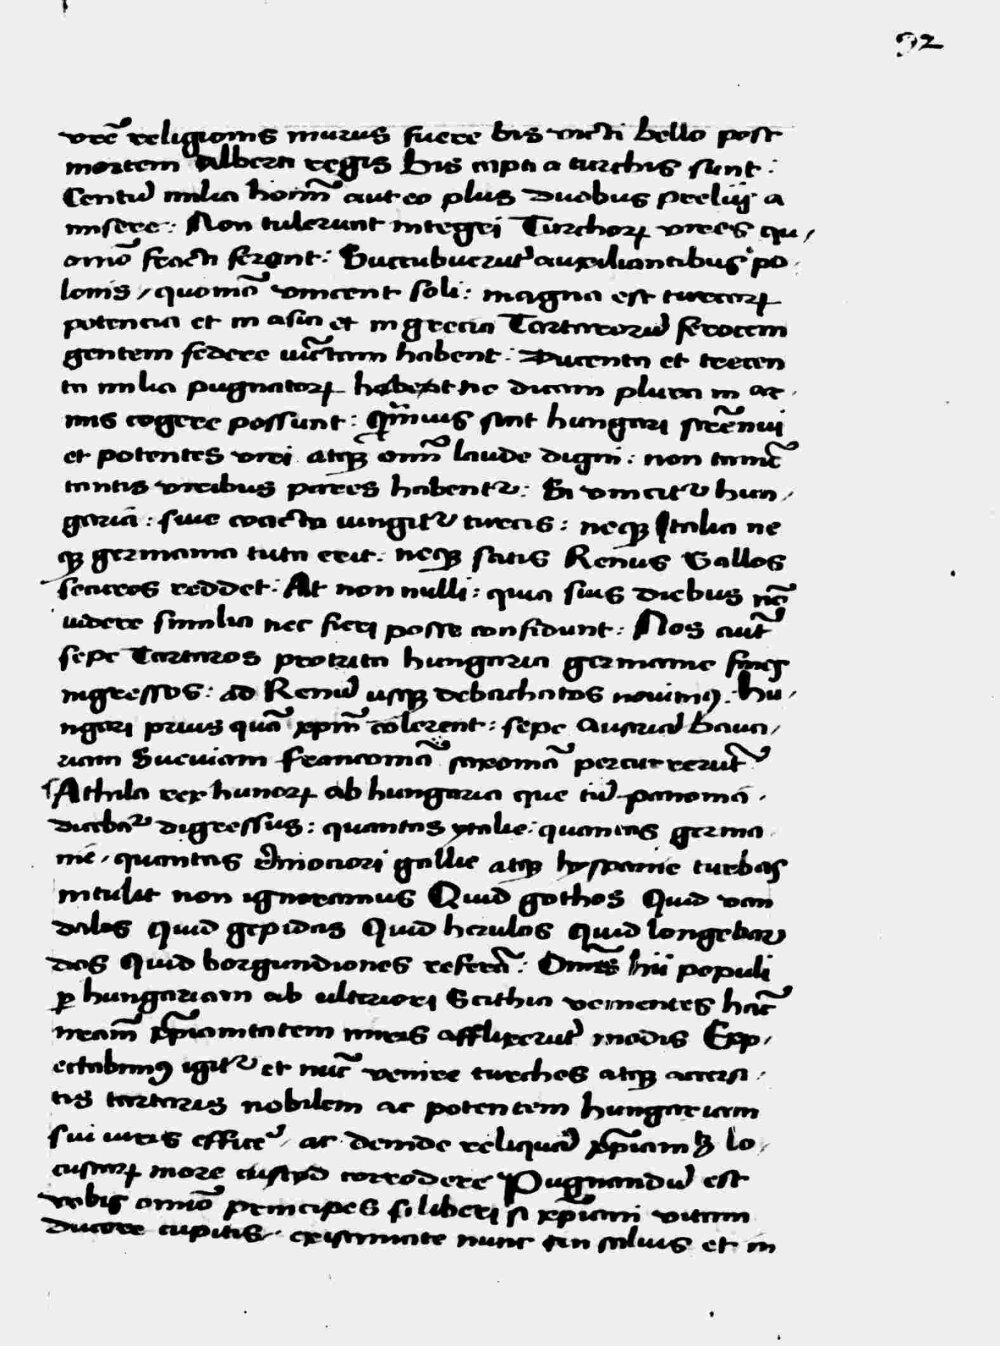 92
vrẽ religionis murus fuere bis victi bello post
mortem Alberti regis his capta a turchis sunt :
Centũ milia homĩ aut eo plus duobus preliis a
misere : Non tulerunt integri Turchorꝝ vires qu /
omõ fracti ferent : Succubuerũt auxiliantibus po
lonis / quomõ vincent soli : magna est turcarꝝ
potencia et in asia et in grecia Tartarorũ ferocem
gentem federe victam habent : Ducenta et trecen
ta milia pugnatorꝝ habent ne dicam plura in ar
mis cogere possunt : Qm̃uis sint hungari strẽnui
et potentes viri atqꝫ omĩ laude digni : non tamẽ
tantis viribus pares habent᷑ : Si vincit᷑ hun /
garia : siue coacta iungit᷑ turcis : neqꝫ Italia ne
qꝫ germania tuta erit : neqꝫ satis Renus Gallos
securos reddet : At non nulli : quia suis diebus nõ
videre similia nec fieri posse confidunt : Nos aut̃
sepe Tartaros protrita hungaria germanie fines
ingressos : ad Renũ usqꝫ debachatos nouimꝰ : hu /
ngari prius quã xp̃m colerent : sepe Austriã baua /
riam Sueuiam franconiã saxoniã percurrerũt
Athila rex hunorꝝ ab hungaria que tũ panonia
dicebat᷑ digressus : quantas ytalie : quantas germa
nie / quantas remociori gallie atqꝫ hyspanie turbas
intulit non ignoramus Quid gothos Quid van
dalos Quid gepidas Quid herulos Quid longobar
dos Quid borgundiones referã : Omnes hii populi
ꝑ hungariam ab ulteriori Scithia venientes hãc
nrãm xp̃ianitatem miris afflixerũt modis Exp /
ectabimꝰ igit᷑ et nũc venire turchos atqꝫ accersi /
tis tartaris nobilem ac potentem hungariam
sui iuris efficẽ / ac deinde reliquã xp̃ianitatem lo /
custarꝝ more corrodere Pugnandũ est
vobis omnĩo principes si liberi si xp̃iani vitam
ducere cupitis / existimate nunc an saluis et in